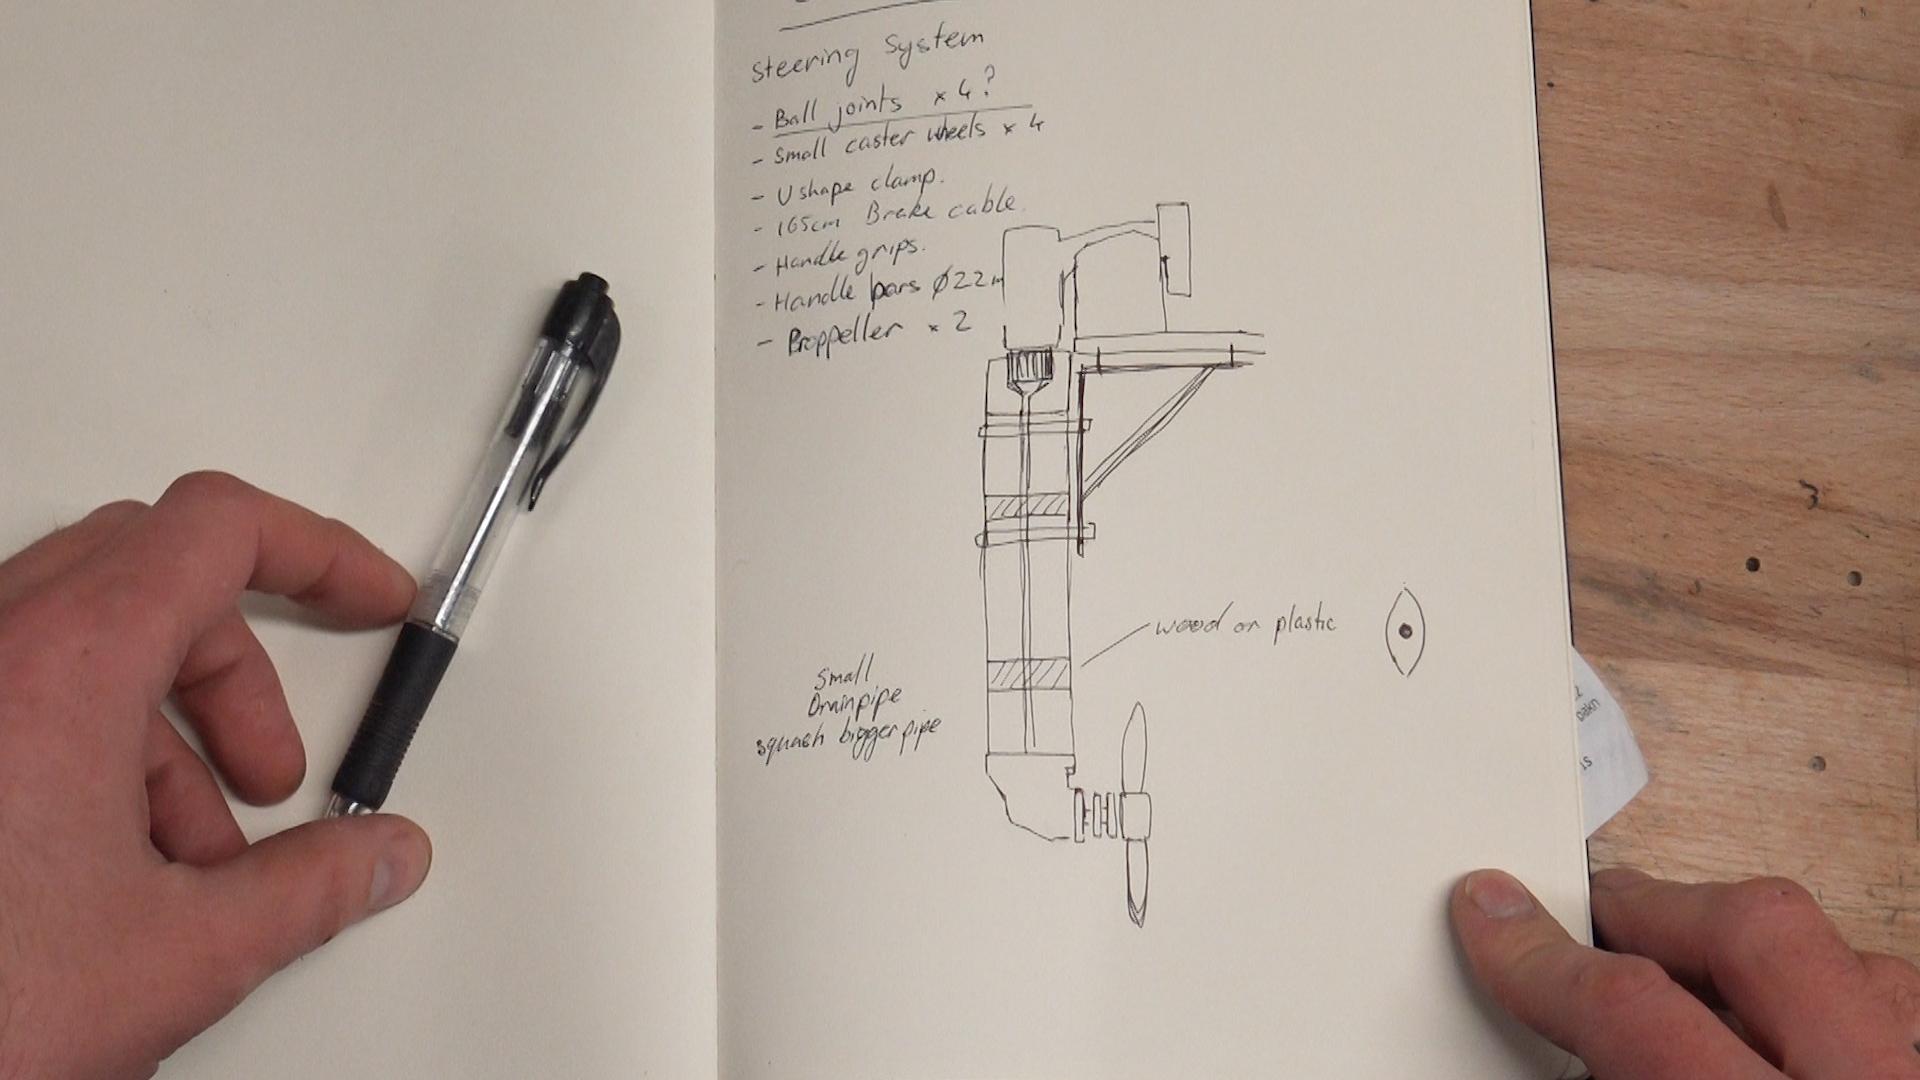 Steering System
- Ball joints x 4?
- Small caster wheels x 4
- U shape clamp.
- 165cm Brake cable.
- Handle grips.
- Handle bars Ø22m
- Proppeller x 2
wood or plastic
Small
Drainpipe
squash bigger pipe